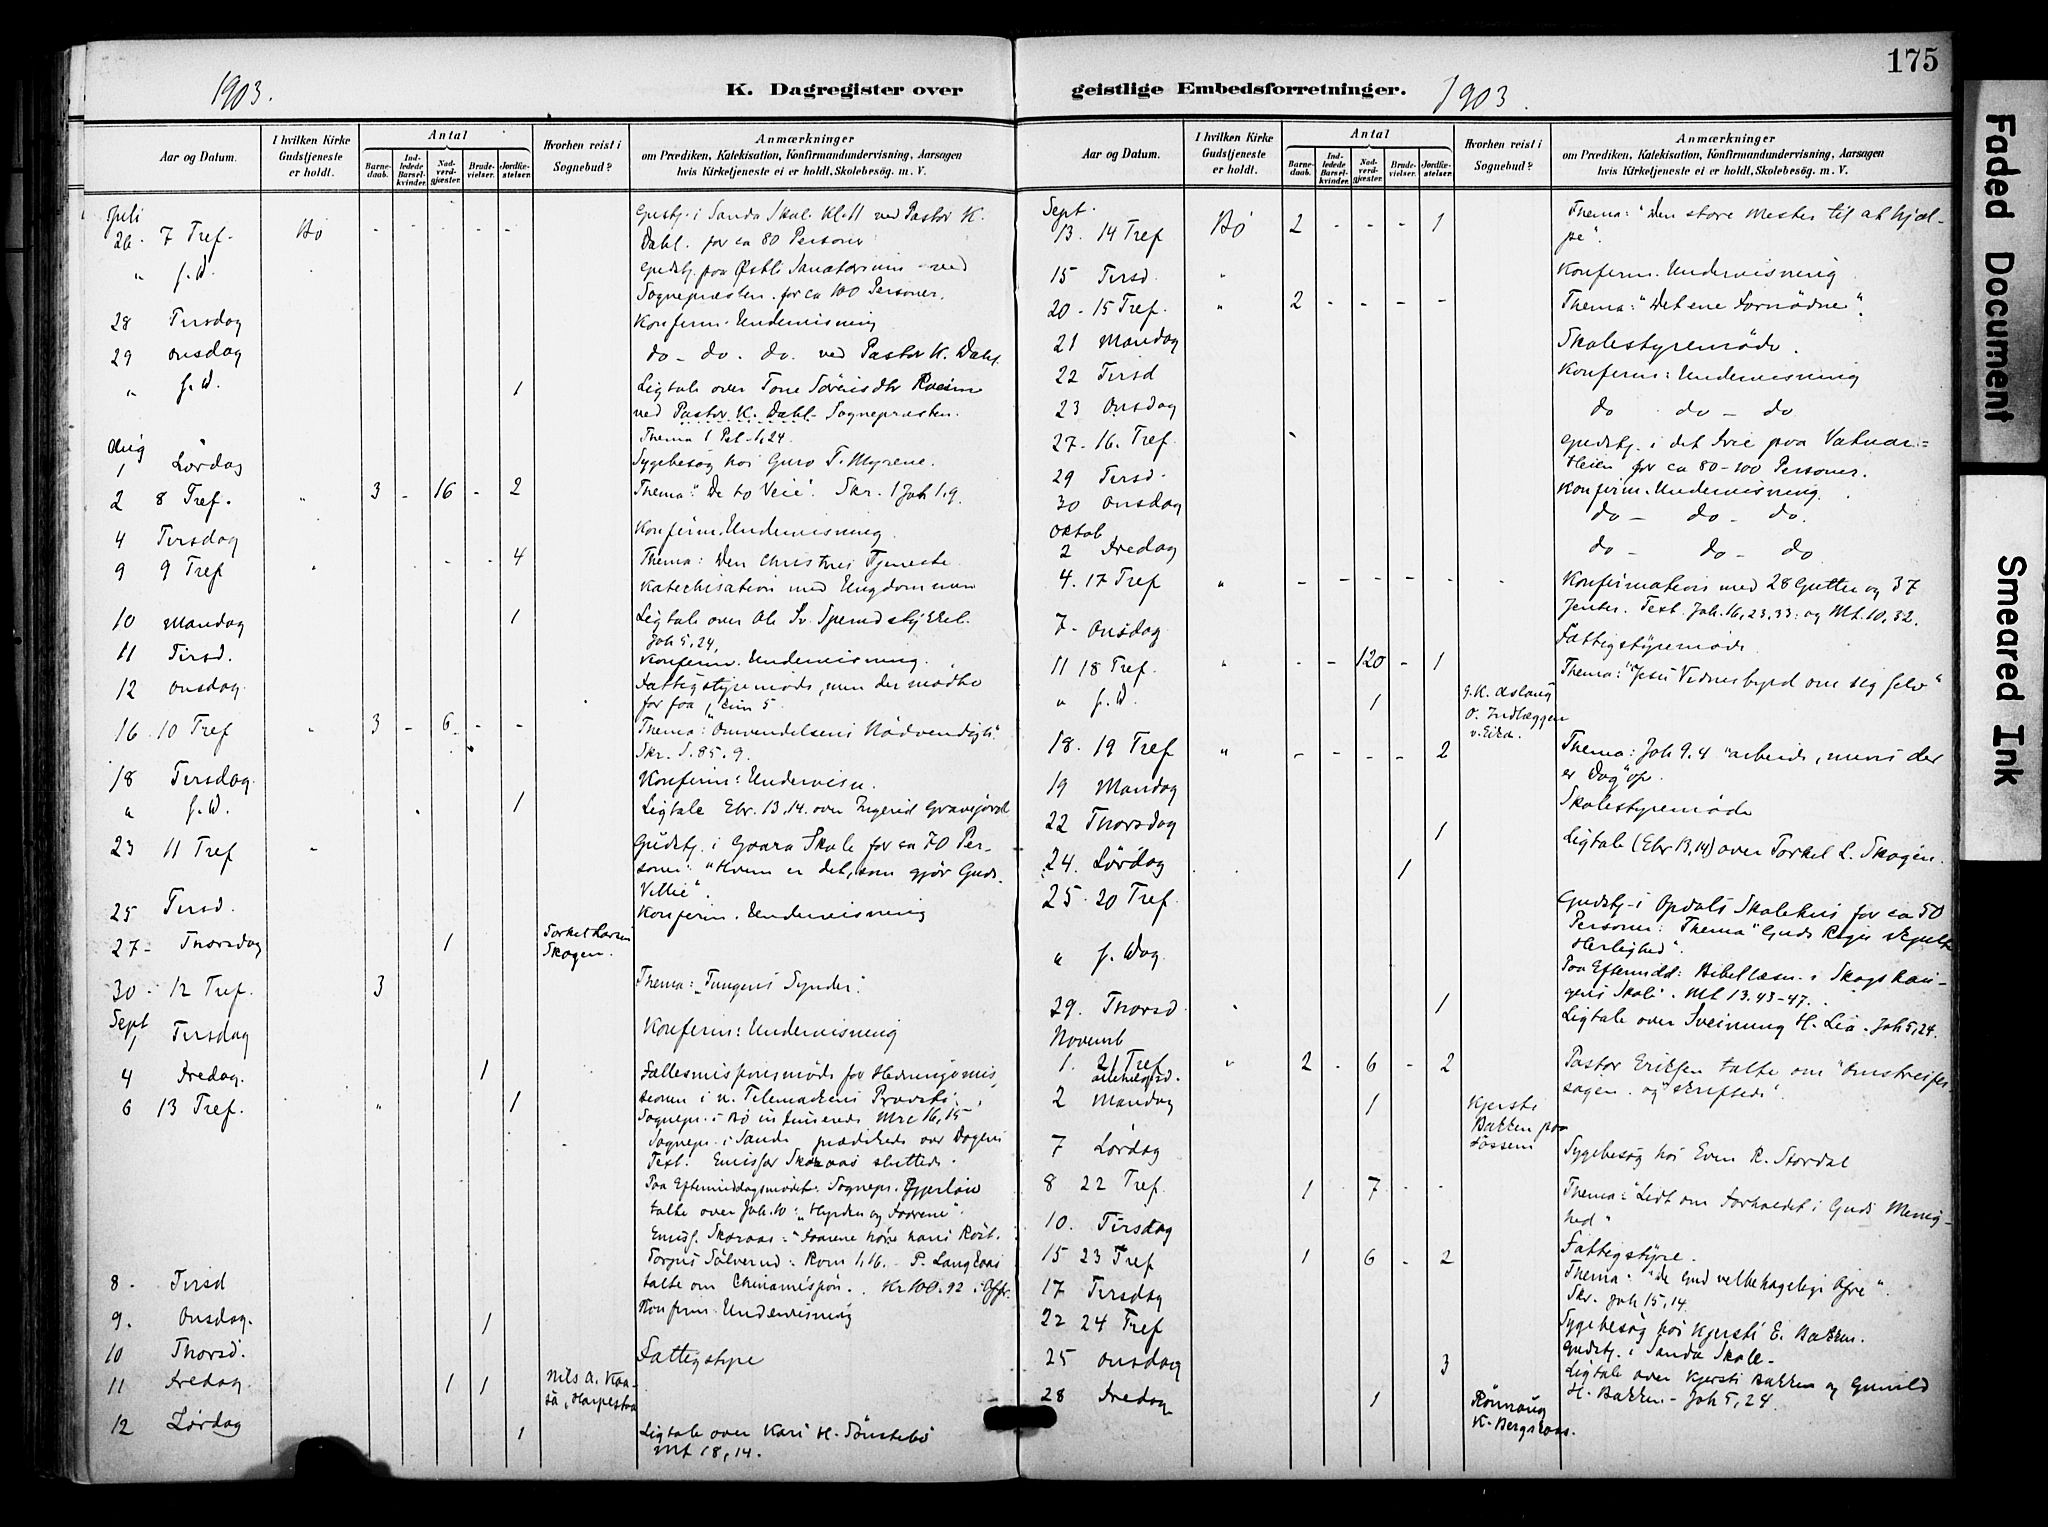 175
1903.
K. Dagregister over
geistlige Embedsforretninger.
1903.
Aar og Datum.
I hvilken Kirke Gudstjeneste er holdt.
Antal
Barnedaab.
Indledede Barselkvinder.
Nadverdgjæster.
Brudevielser.
Jordfæstelser.
Hvorhen reist i Sognebud?
Anmærkninger
om Prædiken, Katekisation, Konfirmandundervisning, Aarsagen
hvis Kirketjeneste ei er holdt, Skolebesøg. m. V.
Juli
26. 7 Tref. Bø - - - - - Gudstj. i Sanda Skole Kl. 11 ved Pastor K.
Dahl. for ca 80 Personer
" s. D. Gudstj. paa Østli Sanatorium ved
Sognepræsten. for ca 100 Personer.
28 Tirsdag Konfirm. Undervisning
29 Onsdag do - do - do. ved Pastor K. Dahl.
" s. D. 1 Ligtale over Tone Sørensdtr
ved Pastor K. Dahl - Sognepræsten.
Thema 1 Pet. 1,24.
Aug
1 Lørdag Sygebesøg hos Guro T. Myrene.
2 8 Tref. " 3 - 16 - 2 Thema: "De to Veie". Skr. 1 Joh 1.9.
4 Tirsdag Konfirm. Undervisning.
9 9 Tref " - - - - 4 Thema: Den Christnes Tjeneste.
Katechisation med Ungdommen
10 Mandag 1 Ligtale over Ole Sv.
Joh 5,24.
11 Tirsd. Konfirm. Undervisning.
12 Onsdag. Fattigstyremøde, men der mødte
for faa, kun 5.
16. 10 Tref " 3 - 6 - - Thema: "Omvendelsens Nødvendigh."
Skr. S. 85. 9.
18 Tirsdag. Konfirm: Undervisn.
" s. D. 1 Ligtale Ebr. 13,14. over Ingerid
23 11 Tref " Gudstj. i Gaara Skole for ca 70 Per-
soner: "Hvem er det, som gjør Guds
Villie".
25 Tirsd. Konfirm. Undervisning
27- Thorsdag 1 Torkel Larsen
Skogen.
30. 12 Tref. 3 Thema: "Tungens Synder."
Sept
1 Tirsdag Konfirm: Undervisning
4 Fredag. 1 Fællesmissionsmøde for Hedningemis-
6 13 Tref. " 1 sionen i n. Telemarkens Provsti.
Sognepr. i Bø Mrc 16,15
Sognepr. i Sande prædikede over Dagens
Text. Emissær Skaraas sluttede.
Paa Eftermiddagsmødet. Sognepr.
talte over Joh. 10: "Hyrden og Faarene".
Emiss. Skaraas: "Faarene høre hans Røst.
Torjus Sølverud: Rom 1,16. - P. Langkaas
8 - Tirsd talte om Chinamission. Kr 100.92 i Offr.
9. Onsdag. 1 Konfirm. Undervisning
10 Thorsd. Fattigstyre
11 Fredag 1 1 Nils A. Kaa-
sa, Harpestra
12 Lørdag 1 Ligtale over Kari H. Sønstebø
Mt 18,14.
Aar og Datum.
I hvilken Kirke Gudstjeneste er holdt.
Antal
Barnedaab.
Indledede Barselkvinder.
Nadverdgjæster.
Brudevielser.
Jordfæstelser.
Hvorhen reist i Sognebud?
Anmærkninger
om Prædiken, Katekisation, Konfirmandundervisning, Aarsagen
hvis Kirketjeneste ei er holdt, Skolebesøg. m. V.
Sept.
13. 14 Tref Bø 2 - - - 1 Thema: "Den store Mester til at hjæl-
pe".
15 Tirsd. " Konfirm. Undervisning
20 - 15 Tref. " 2 - - - - Thema: "Det ene Fornødne".
21 Mandag Skolestyremøde.
22 Tirsd Konfirm: Undervisning
23 Onsdag do do - do
27 - 16. Tref. Gudstj. i det Frie paa Vatnar-
Heien for ca 80-100 Personer.
29 Tirsd. Konfirm. Undervisning.
30 Onsdag do - do - do.
Oktob
2 Fredag do - do - do
4. 17 Tref " - - - - - Konfirmation med 28 Gutter og 37
Jenter. Text. Joh. 16,23,33. og Mt. 10,32.
7 - Onsdag Fattigstyremøde
11 18 Tref. " - - 120 - 1 Thema: "Jesu Vidnesbyrd om sig selv"
" s. D. 1 G. K. Aslaug
O. Indlæggen
v. Eika.
18. 19 Tref " - - - - 2 Thema: Joh 9.4 "arbeide, mens det
er Dag" op.
19 Mandag Skolestyremøde
22 Thorsdag 1 Ligtale (Ebr 13,14) over Torkel L. Skogen.
24. Lørdag 1
25. 20 Tref. Gudstj. i Opdals Skolehus for ca 50
Personer: Thema "Guds Riges skjulte
Herlighed".
" s. Dag. Paa Eftermidd: Bibellæsn. i Skogshau-
gens Skole. Mt 13.43-47.
29. Thorsd " 1 Ligtale over Sveinung H. Lia. Joh 5,24.
Novemb
1. 21 Tref " 2 - 6 - 2 Pastor Eriksen talte om "Omstreifer-
allehelgesd. sagen. og "skriftede".
2 Mandag 1 Kjersti
Bakken paa
Fossen
7 Lørdag Sygebesøg hos Even R. Stordal
8 22 Tref. 1 7 - - Thema: "Lidt om Forholdet i Guds Menig-
hed"
10. Tirsdag Fattigstyre.
15 23 Tref 1 6 - 2 Thema: "De Gud velbehagelige Ofre".
Skr. Joh 15,14.
17 Tirsdag Sygebesøg hos Kjersti E. Bakken.
22 24 Tref Gudstj. i Sanda Skole -
25 Onsdag 3 Ligtale over Kjersti Bakken og Gunild
H. Bakken - Joh 5,24.
28 Fredag 1 Rønnaug
K. Bergskaas.
Faded Document
Smeared Ink